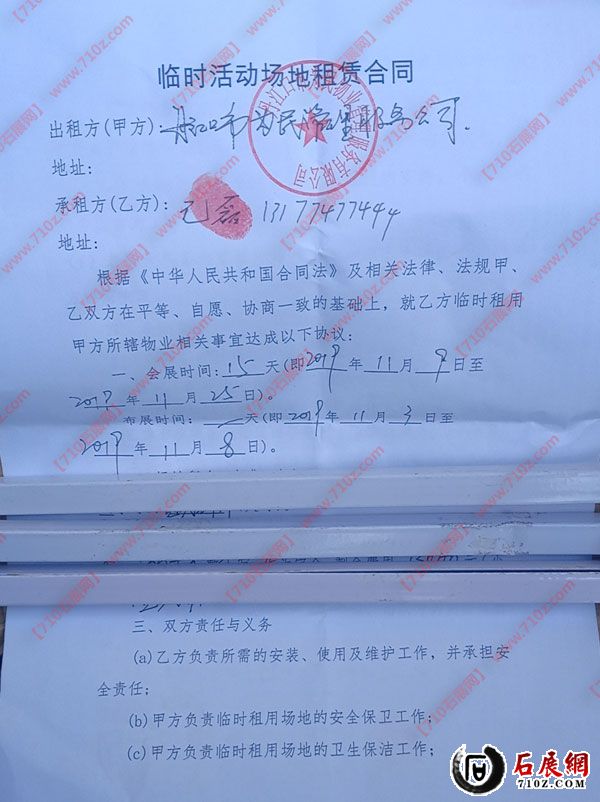 临时活动场地租赁合同
出租方(甲方): 丹江口市为民管理服务公司.
地址:
承租方(乙方): 磊 13177477444
地址:
根据《中华人民共和国合同法》及相关法律、法规甲、
乙双方在平等、自愿、协商一致的基础上，就乙方临时租用
甲方所辖物业相关事宜达成以下协议:
一、会展时间: 15 天(即2019 年 11 月 9 日至
2019 年 11 月 25 日)。
布展时间: 天(即2019年 11 月 3 日至
2019 年 11 月 8 日)。
三、双方责任与义务
(a)乙方负责所需的安装、使用及维护工作，并承担安
全责任;
(b)甲方负责临时租用场地的安全保卫工作;
(c)甲方负责临时租用场地的卫生保洁工作;
石展網
710Z.COM
【710石展网】www.710z.com